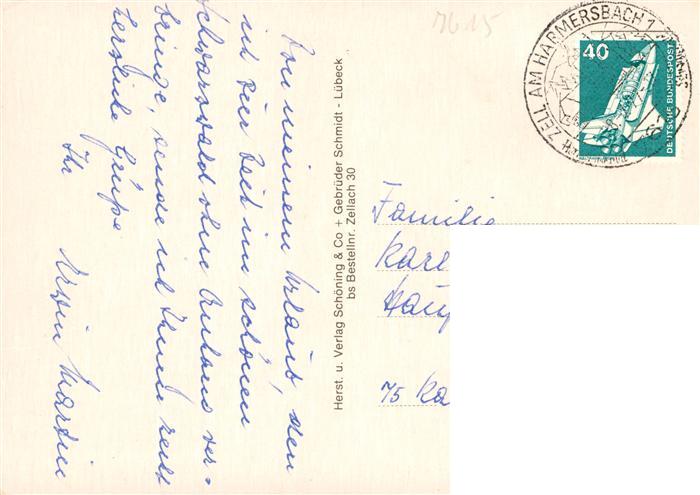 Von meinem Urlaub, den
ich zur Zeit im schönen
Schwarzwald ohne Anhang ver-
bringe, sende ich Ihnen recht
herzliche Grüße
Ihr
Erwin Martin
Herst. u. Verlag Schöning & Co + Gebrüder Schmidt - Lübeck
bs Bestellnr. Zellach 30
7615
ZELL AM HARMERSBACH 1
40
DEUTSCHE BUNDESPOST
Familie
Karl
Haup
75 Ka